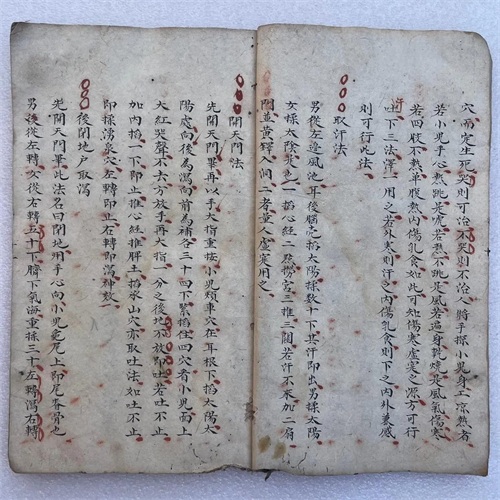 穴兩定生死哭則可治不哭則不治人將手探小兒身上凉熱者
若小兒手心熱跳是虎若熱不跳是風若遍身乾燒是風氣傷寒
若四肢不熱單腹熱內傷乳食如此可知傷寒虛寔之源方可行
汗吐下三法澤一用之若外寒則汗之內傷乳食則下之內外兼感
則可行此法
取汗法
男從左邊風池耳後腦窝掐太陽採数十下其汗即出男揉太陽
女揉太陰是也一掐心經二點勞宮三推三關若汗不來加二扇
門並黃蜂入洞二者量人虛寔用之
開天門法
先開天門畢再以手大指重按小兒頰車穴在耳根下掐太陽太
陽處向後為瀉向前為補各三十四下緊掐住四穴者小兒面上
大紅哭聲不去方放手再大指一分之後地不放即吐若吐不止
加內掐一下即止推心經推脾土掐承山穴亦取吐法如吐不止
即揉湧泉穴左轉即止右轉即瀉神效
後閉地戶取瀉
先開天門畢此法名曰閉地用手心向小兒尾上即尾脊骨也
男後從左轉女從右轉五十下臍下氣海重揉三十左轉瀉右轉